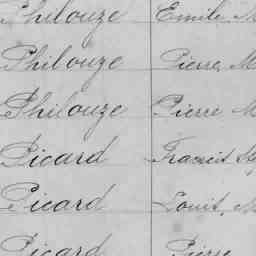 Philouze Emile M
Philouze Pierre M
Philouze Pierre M
Picard Francis
Picard Louis M
Picard Pierre